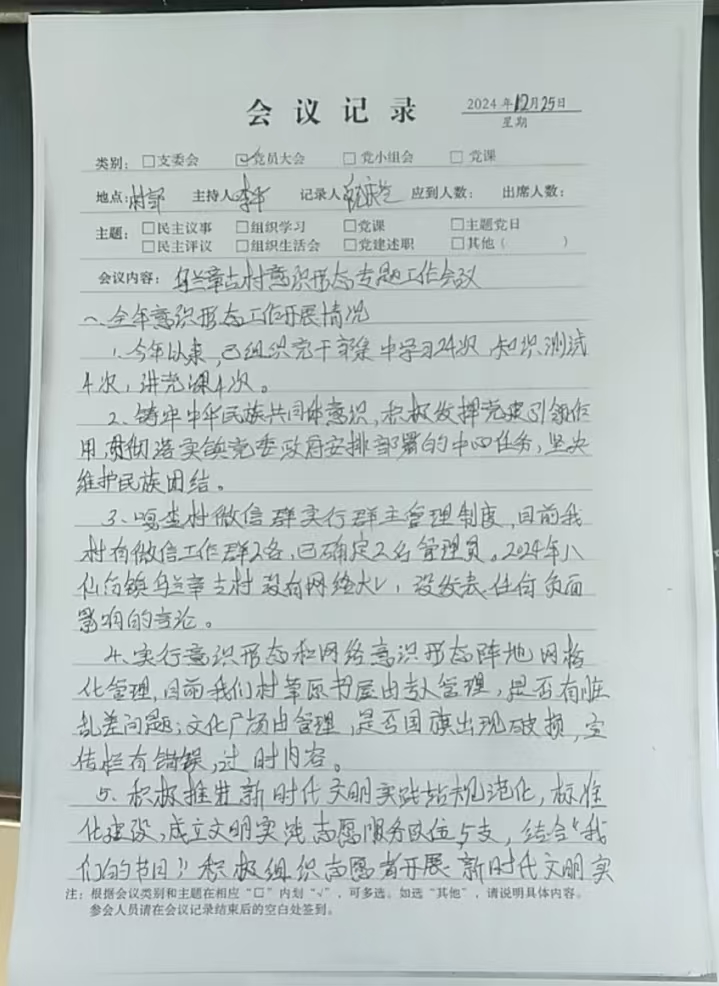 会议记录
2024年12月25日
星期
类别： □支委会 ☑党员大会 □党小组会 □党课
地点：村部 主持人：李华 记录人： 应到人数： 出席人数：
主题： □民主议事 □组织学习 □党课 □主题党日
□民主评议 □组织生活会 □党建述职 □其他（ ）
会议内容：乌兰章古村意识形态专题工作会议
一、全年意识形态工作开展情况
1、今年以来，已组织党干部集中学习24次，知识测试
4次，讲党课4次。
2、铸牢中华民族共同体意识，积极发挥党建引领作
用，贯彻落实镇党委政府安排部署的中心任务，坚决
维护民族团结。
3、嘎查村微信群实行群主管理制度，目前我
村有微信工作群2各，已确定2名管理员。2024年八
仙筒镇乌兰章古村没有网络大V，没发表任何负面
影响的言论。
4、实行意识形态和网络意识形态阵地网格
化管理，目前我们村草原书屋由专人管理，是否有脏
乱差问题；文化广场由管理，是否国旗出现破损，宣
传栏有错误，过时内容。
5、积极推进新时代文明实践站规范化，标准
化建设，成立文明实践志愿服务队伍5支，结合“我
们的节日”积极组织志愿者开展新时代文明实
注：根据会议类别和主题在相应“□”内划“√”，可多选。如选“其他”，请说明具体内容。
参会人员请在会议记录结束后的空白处签到。